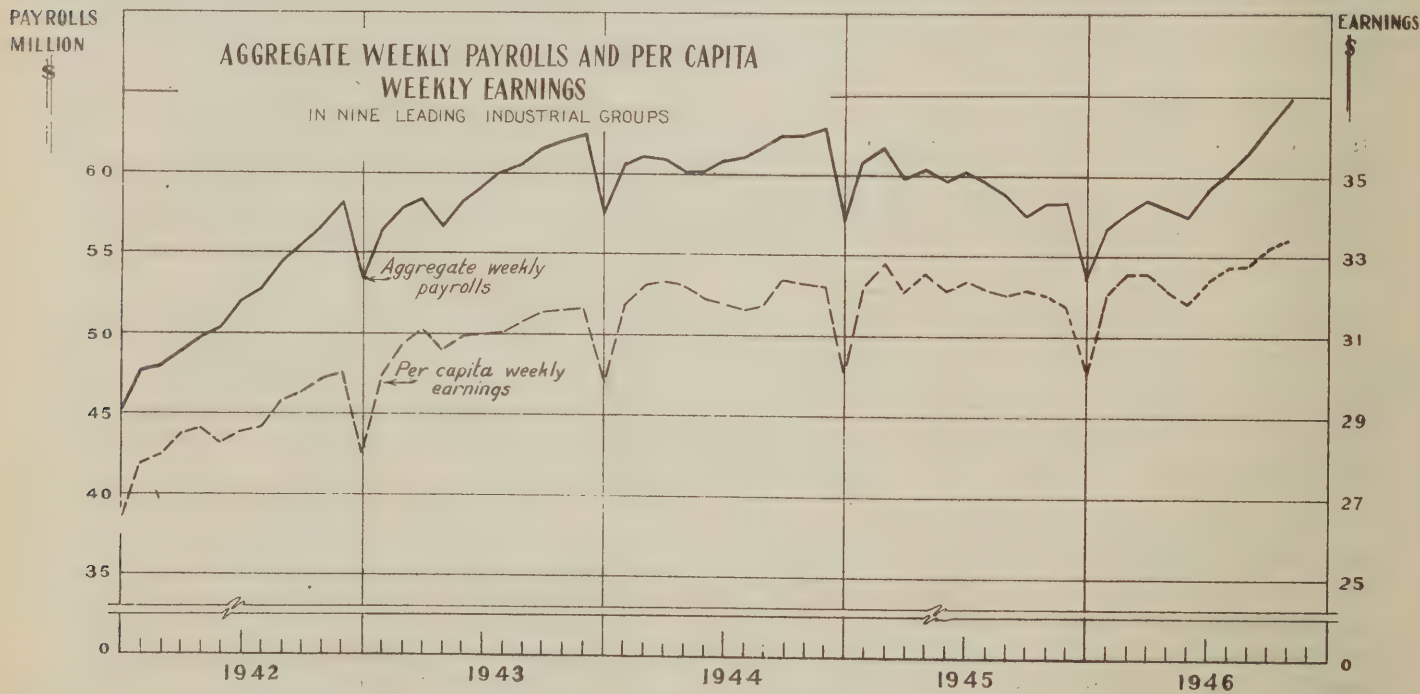 PAYROLLS
MILLION
$
EARNINGS
$
AGGREGATE WEEKLY PAYROLLS AND PER CAPITA
WEEKLY EARNINGS
IN NINE LEADING INDUSTRIAL GROUPS
60
55
50
45
40
35
0
35
33
31
29
27
25
0
Aggregate weekly
payrolls
Per capita weekly
earnings
1942
1943
1944
1945
1946